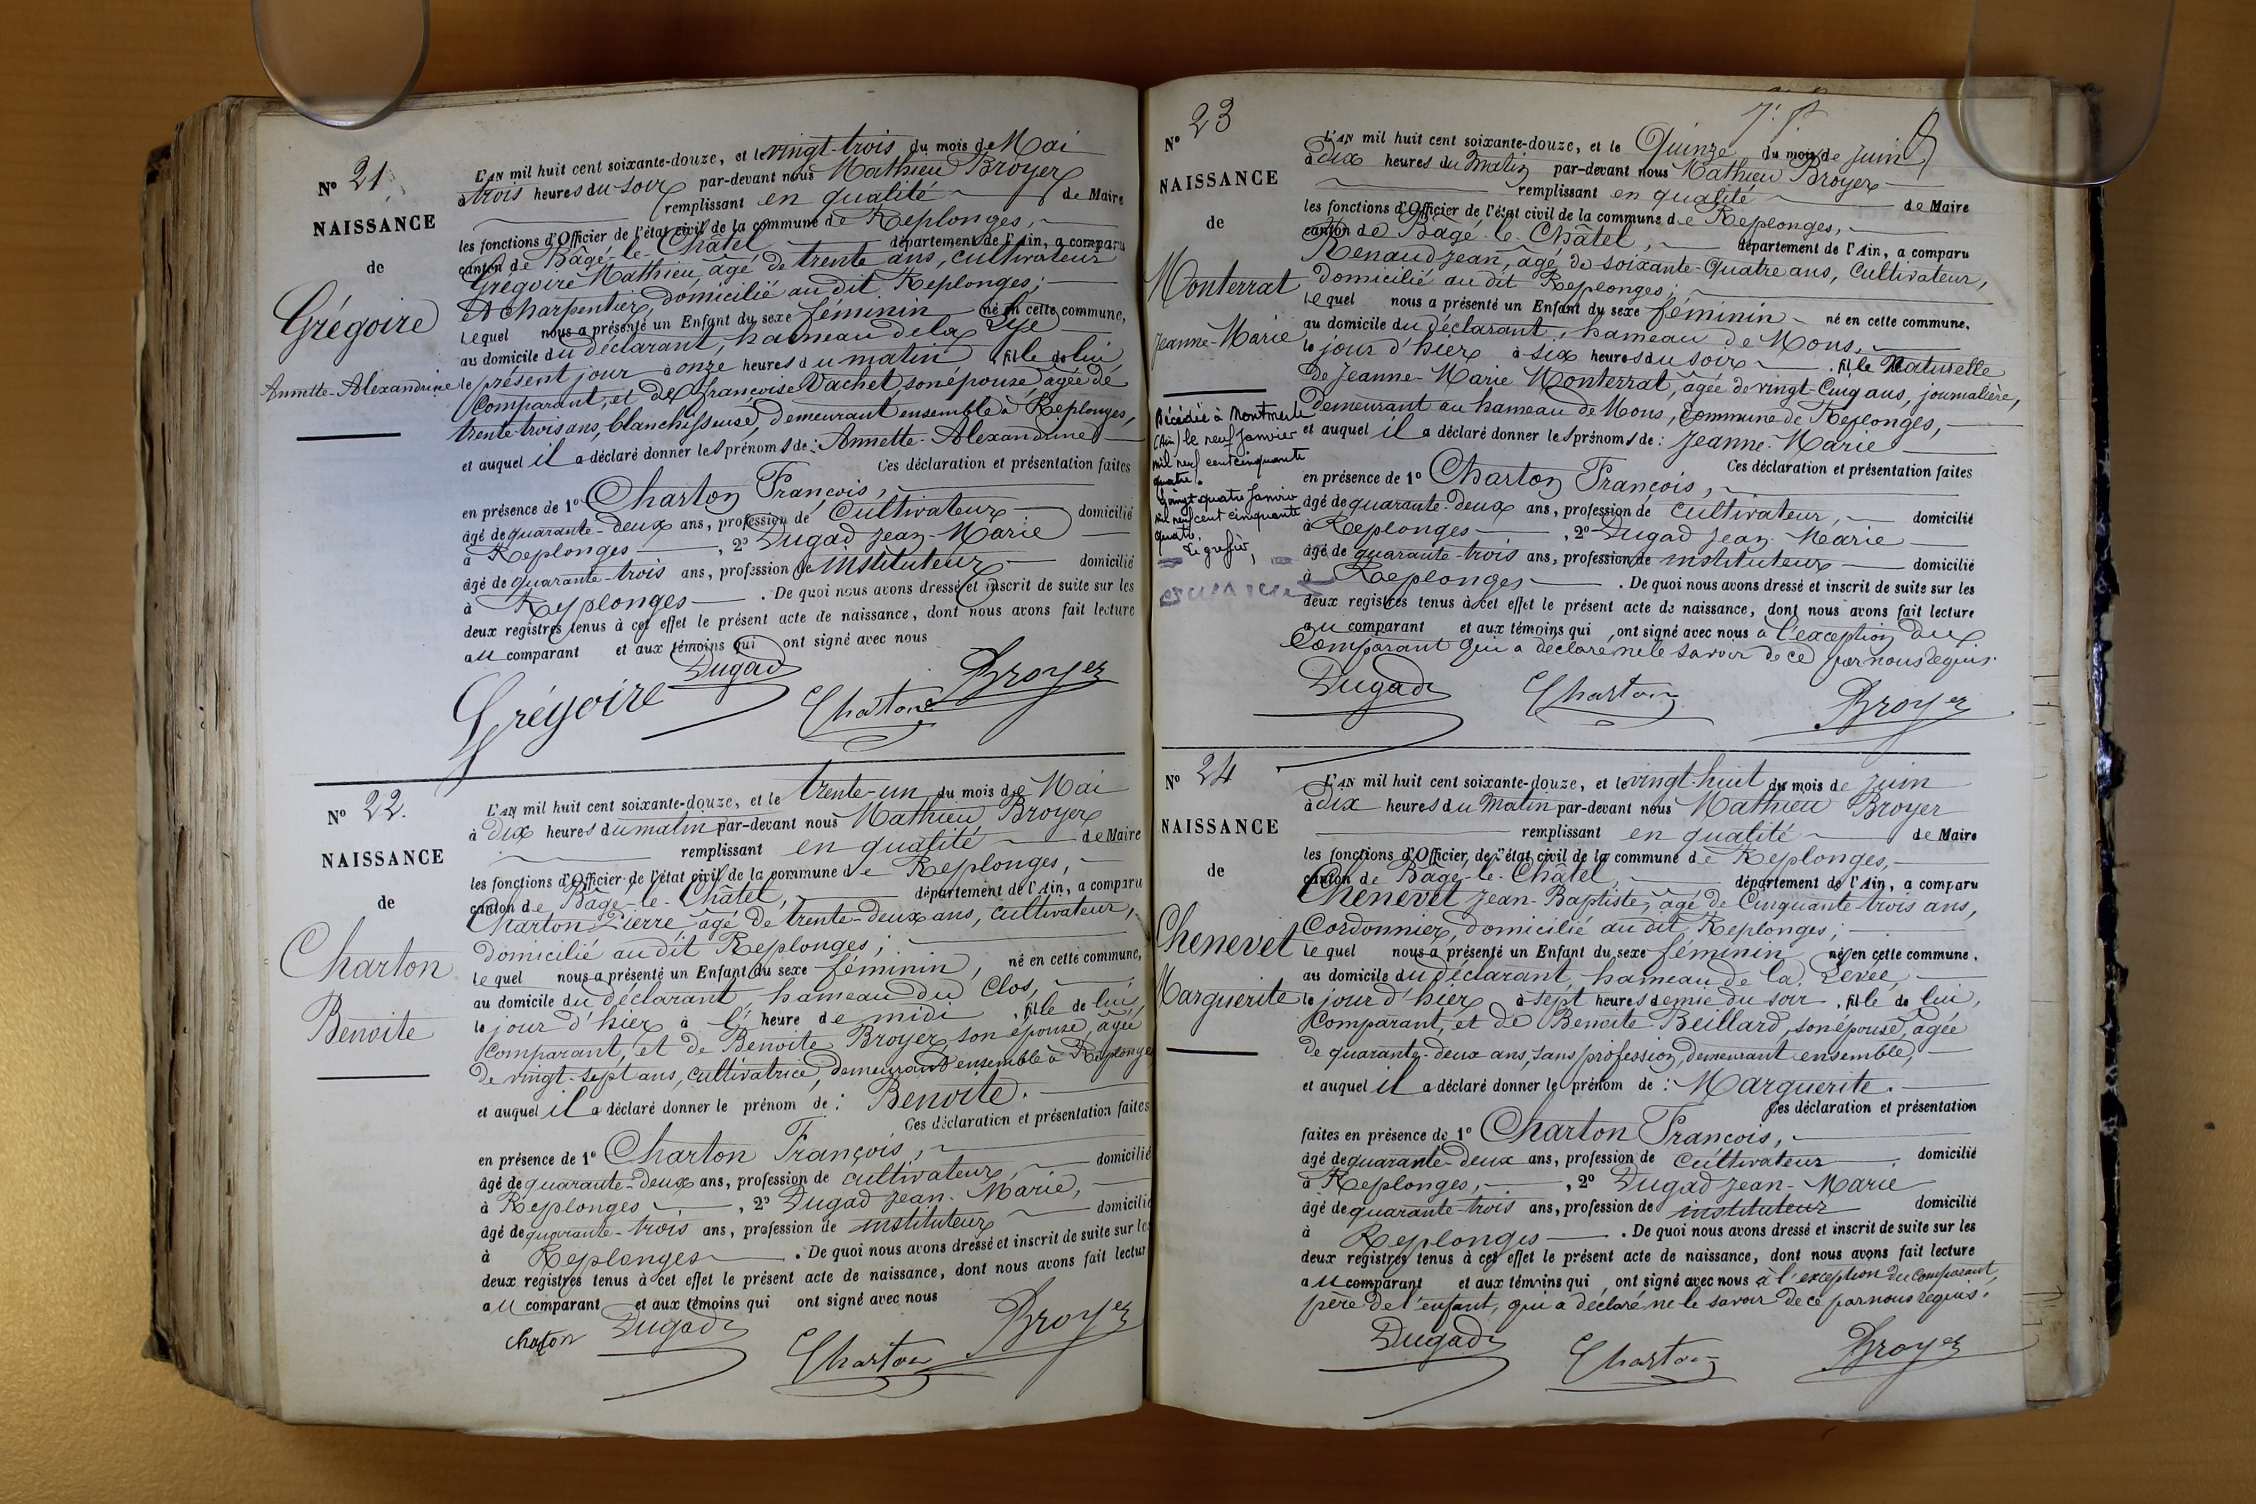 N° 21
NAISSANCE
de
Grégoire
Annette-Alexandrine
L'AN mil huit cent soixante-douze, et le vingt-trois du mois de Mai
à trois heures du soir par-devant nous Mathieu Broyer
remplissant en qualité de Maire
les fonctions d'Officier de l'état civil de la commune de Replonges,
canton de Bâgé-le-Châtel département de l'Ain, a comparu
Grégoire Mathieu, âgé de trente ans, cultivateur
et charpentier, domicilié au dit Replonges;
Lequel nous a présenté un Enfant du sexe féminin né en cette commune,
au domicile du déclarant, hameau de la
le présent jour à onze heures du matin, fille de lui
comparant, et de Françoise Vachet, son épouse, âgée de
trente-trois ans, blanchisseuse, demeurant ensemble à Replonges,
et auquel il a déclaré donner les prénoms de : Annette-Alexandrine
Ces déclaration et présentation faites
en présence de 1° Charton François,
âgé de quarante-deux ans, profession de Cultivateur domicilié
à Replonges, 2° Dugad Jean-Marie
âgé de quarante-trois ans, profession de instituteur domicilié
à Replonges. De quoi nous avons dressé et inscrit de suite sur les
deux registres tenus à cet effet le présent acte de naissance, dont nous avons fait lecture
au comparant et aux témoins qui ont signé avec nous
Dugad
Grégoire Charton Broyer
N° 22.
NAISSANCE
de
Charton
Benoite
L'AN mil huit cent soixante-douze, et le trente-un du mois de Mai
à dix heures du matin par-devant nous Mathieu Broyer
remplissant en qualité de Maire
les fonctions d'Officier de l'état civil de la commune de Replonges,
canton de Bâgé-le-Châtel, département de l'Ain, a comparu
Charton Pierre, âgé de trente-deux ans, cultivateur,
domicilié au dit Replonges;
Lequel nous a présenté un Enfant du sexe féminin, né en cette commune,
au domicile du déclarant, hameau du Clos,
le jour d'hier à l' heure de midi, fille de lui,
comparant, et de Benoite Broyer, son épouse, âgée
de vingt-sept ans, cultivatrice, demeurant ensemble à Replonges
et auquel il a déclaré donner le prénom de : Benoite.
Ces déclaration et présentation faites
en présence de 1° Charton François,
âgé de quarante-deux ans, profession de cultivateur, domicilié
à Replonges, 2° Dugad Jean-Marie,
âgé de quarante-trois ans, profession de instituteur domicilié
à Replonges. De quoi nous avons dressé et inscrit de suite sur les
deux registres tenus à cet effet le présent acte de naissance, dont nous avons fait lecture
au comparant et aux témoins qui ont signé avec nous
Charton Dugad Charton Broyer
N° 23
NAISSANCE
de
Monterrat
Jeanne-Marie
Décédée à Montmerle
(Ain) le neuf Janvier
mil neuf cent cinquante
quatre.
Vingt quatre Janvier
mil neuf cent cinquante
quatre.
Le greffier,
L'AN mil huit cent soixante-douze, et le Quinze du mois de juin
à dix heures du Matin par-devant nous Mathieu Broyer
remplissant en qualité de Maire
les fonctions d'Officier de l'état civil de la commune de Replonges,
canton de Bâgé-le-Châtel, département de l'Ain, a comparu
Renaud Jean, âgé de soixante-quatre ans, Cultivateur,
domicilié au dit Replonges;
Lequel nous a présenté un Enfant du sexe féminin né en cette commune,
au domicile du déclarant, hameau de Mons,
le jour d'hier à six heures du soir, fille Naturelle
de Jeanne-Marie Monterrat, âgée de vingt-Cinq ans, journalière,
Demeurant au hameau de Mons, Commune de Replonges,
et auquel il a déclaré donner les prénoms de : Jeanne-Marie
Ces déclaration et présentation faites
en présence de 1° Charton François,
âgé de quarante-deux ans, profession de cultivateur, domicilié
à Replonges, 2° Dugad Jean-Marie
âgé de quarante-trois ans, profession de instituteur domicilié
à Replonges. De quoi nous avons dressé et inscrit de suite sur les
deux registres tenus à cet effet le présent acte de naissance, dont nous avons fait lecture
au comparant et aux témoins qui, ont signé avec nous à l'exception du
Comparant qui a déclaré ne le savoir de ce par nous requis.
Dugad Charton Broyer
N° 24
NAISSANCE
de
Chenevet
Marguerite
L'AN mil huit cent soixante-douze, et le vingt-huit du mois de juin
à dix heures du Matin par-devant nous Mathieu Broyer
remplissant en qualité de Maire
les fonctions d'Officier de l'état civil de la commune de Replonges,
canton de Bâgé-le-Châtel, département de l'Ain, a comparu
Chenevet Jean-Baptiste, âgé de Cinquante-trois ans,
Cordonnier, domicilié au dit Replonges;
Lequel nous a présenté un Enfant du sexe féminin né en cette commune,
au domicile du déclarant, hameau de la Levée,
le jour d'hier à sept heures demie du soir, fille de lui,
Comparant, et de Benoite Beillard, son épouse, âgée
de quarante-deux ans, sans profession, demeurant ensemble,
et auquel il a déclaré donner le prénom de : Marguerite.
Ces déclaration et présentation
faites en présence de 1° Charton François,
âgé de quarante-deux ans, profession de Cultivateur, domicilié
à Replonges, 2° Dugad Jean-Marie
âgé de quarante-trois ans, profession de instituteur domicilié
à Replonges. De quoi nous avons dressé et inscrit de suite sur les
deux registres tenus à cet effet le présent acte de naissance, dont nous avons fait lecture
au comparant et aux témoins qui, ont signé avec nous à l'exception du Comparant,
père de l'enfant, qui a déclaré ne le savoir de ce par nous requis.
Dugad Charton Broyer